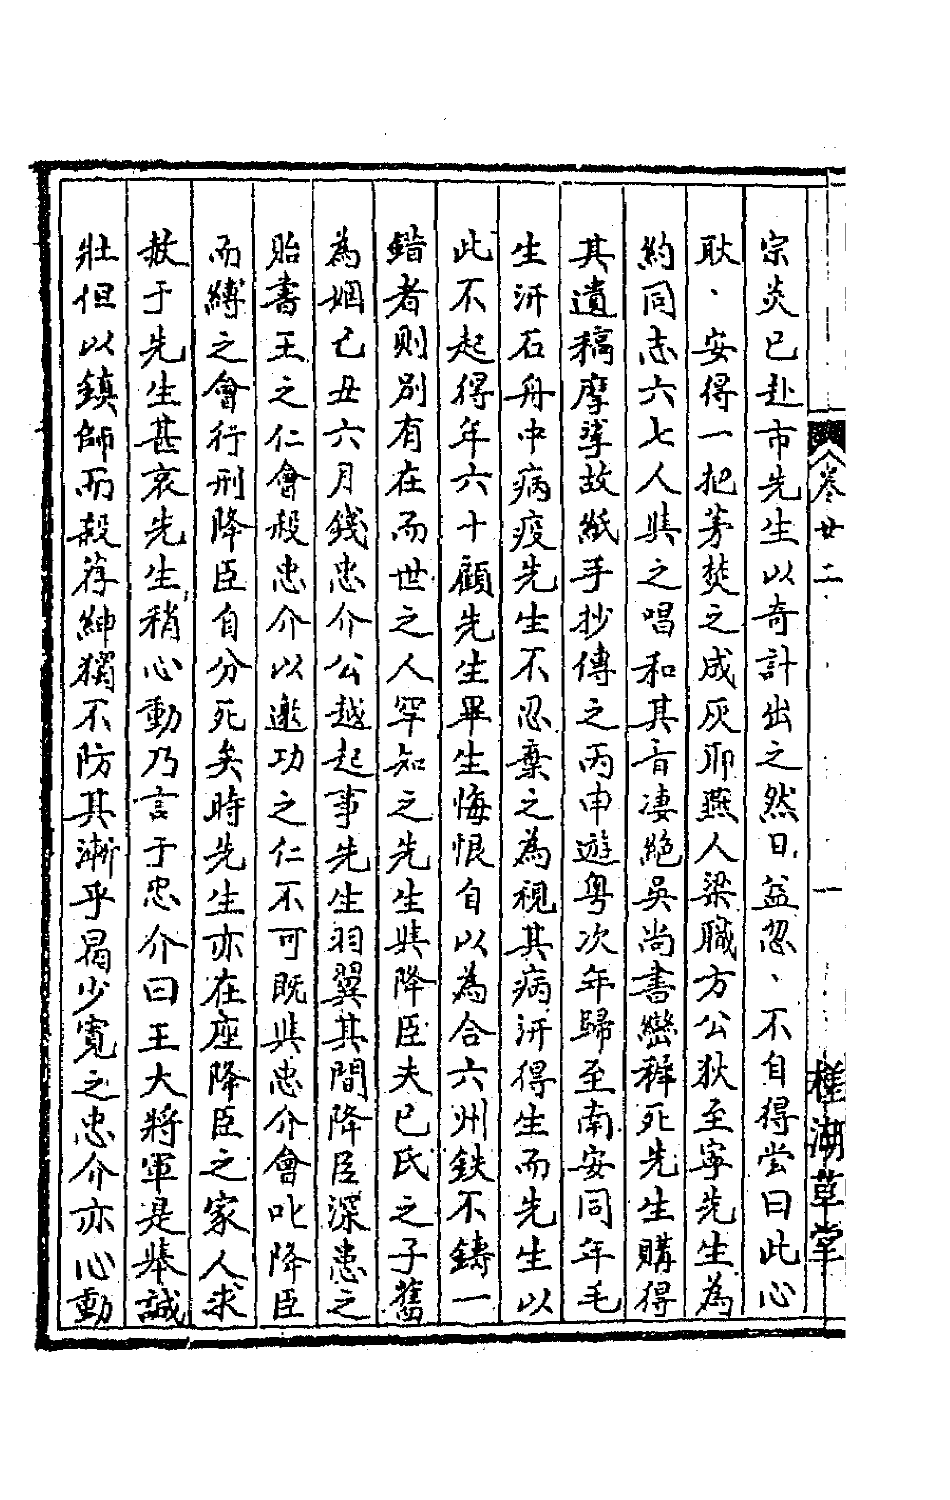 宗炎已赴市先生以奇計出之然日益忽、不自得尝曰此心
耿、安得一把茅焚之成灰耶燕人梁職方公狄至寧先生為
約同志六七人與之唱和其音凄絕吳尚書巒穉死先生購得
其遺稿摩挲故紙手抄傳之丙申遊粤次年歸至南安同年毛
生汧石舟中病疫先生不忍棄之為視其病汧得生而先生以
此不起得年六十顧先生畢生悔恨自以為合六州鉄不鑄一
錯者則別有在而世之人罕知之先生與降臣夫己氏之子舊
為姻己丑六月錢忠介公越起事先生羽翼其間降臣深患之
貽書王之仁會殺忠介以邀功之仁不可既與忠介會叱降臣
而縛之會行刑降臣自分死矣時先生亦在座降臣之家人求
救于先生甚哀先生稍心動乃言于忠介曰王大將軍是舉誠
壯但以鎮師而殺荐紳獨不防其漸乎曷少寬之忠介亦心動
卷廿二
一
槎湖草堂